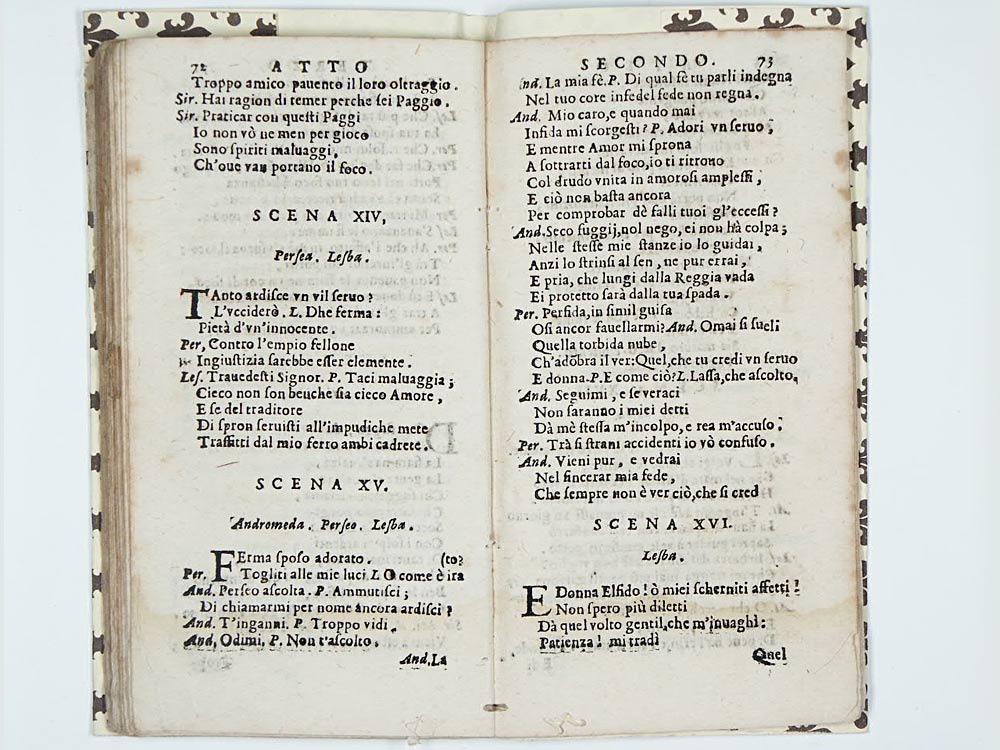 72 ATTO
Troppo amico pauento il loro oltraggio.
Sir. Hai ragion di temer perche sei Paggio.
Sir. Praticar con questi Paggi
Io non vò ne men per gioco
Sono spiriti maluaggi,
Ch'oue van portano il foco.
SCENA XIV,
Persea. Lesba.
TAnto ardisce vn vil seruo?
L'vcciderò. L. Dhe ferma:
Pietà d'vn'innocente.
Per, Contro l'empio fellone
Ingiustizia sarebbe esser clemente.
Les. Trauedesti Signor. P. Taci maluaggia;
Cieco non son beuche sia cieco Amore,
E se del traditore
Di spron seruisti all'impudiche mete
Trafitti dal mio ferro ambi cadrete.
SCENA XV.
Andromeda. Perseo. Lesba.
FErma sposo adorato. (to?
Per. Togliti alle mie luci. L O come è ira
And. Perseo ascolta. P. Ammutisci;
Di chiamarmi per nome àncora ardisci?
And. T'inganni. P. Troppo vidi.
And, Odimi. P. Non t'ascolto.
And. La
SECONDO. 73
And. La mia fè. P. Di qual fè tu parli indegna
Nel tuo core infedel fede non regna.
And. Mio caro, e quando mai
Infida mi scorgesti? P. Adori vn seruo;
E mentre Amor mi sprona
A sottrarti dal foco, io ti ritrouo
Col drudo vnita in amorosi amplessi,
E ciò non basta ancora
Per comprobar dè falli tuoi gl'eccessi?
And. Seco fuggij, nol nego, ei non hà colpa;
Nelle stesse mie stanze io lo guidai,
Anzi lo strinsi al sen, ne pur errai,
E pria, che lungi dalla Reggia vada
Ei protetto sarà dalla tua spada.
Per. Perfida, in simil guisa
Osi ancor fauellarmi? And. Omai si sueli
Quella torbida nube,
Ch'adōbra il ver: Quel, che tu credi vn seruo
E donna. P. E come ciò? L. Lassa, che ascolto.
And. Seguimi, e se veraci
Non saranno i miei detti
Dà mè stessa m'incolpo, e rea m'accuso;
Per. Trà si strani accidenti io vò confuso.
And. Vieni pur, e vedrai
Nel sincerar mia fede,
Che sempre non è ver ciò, che si cred
SCENA XVI.
Lesba.
E Donna Elfido! ò miei scherniti affetti!
Non spero più diletti
Dà quel volto gentil, che m'inuaghì:
Patienza! mi tradì
Quel